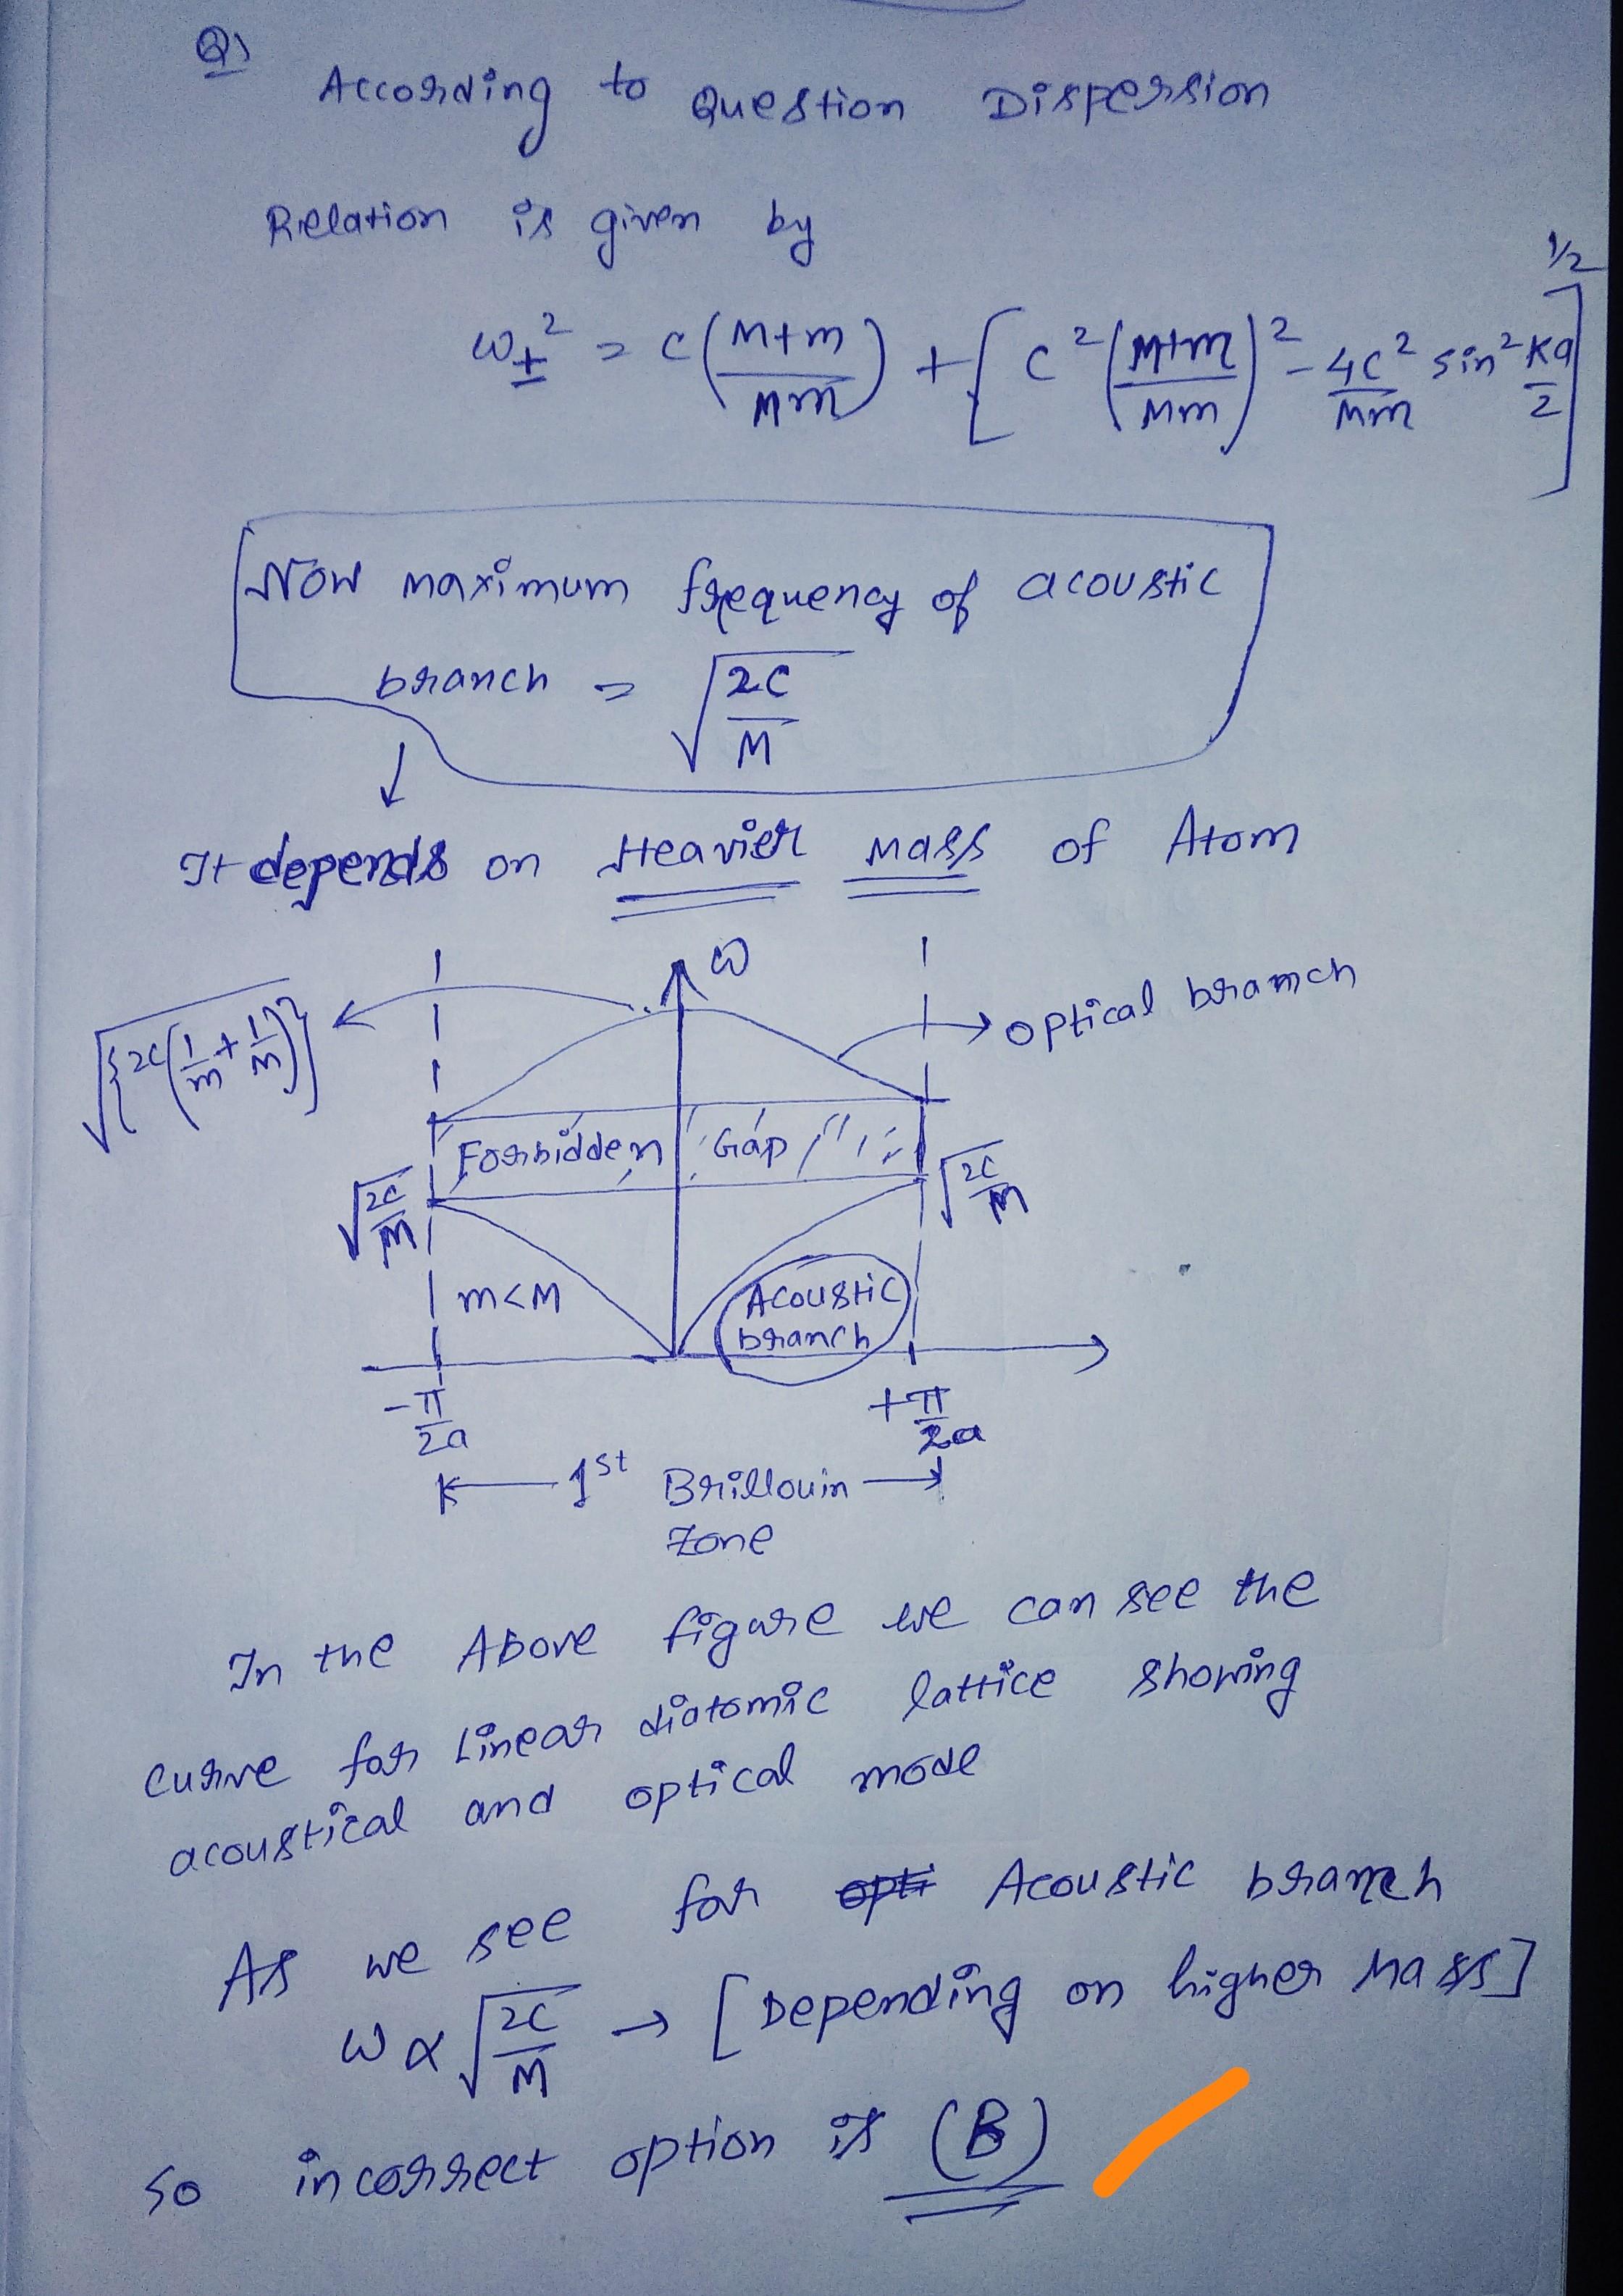 Q1
According to Question Dispersion
Relation is given by
ω±² = C(M+m/Mm) + [C²(M+m/Mm)² - 4C²/Mm sin² Ka/2]^1/2
Now maximum frequency of acoustic
branch = √2C/M
↓
It depends on Heavier Mass of Atom
ω
√{2C(1/m+1/m)}
optical branch
Forbidden Gap
√2C/M
√2C/M
m<M
Acoustic
branch
-π/2a
+π/2a
1st Brillouin
Zone
In the Above figure we can see the
curve for Linear diatomic lattice showing
acoustical and optical mode
As we see for opti Acoustic branch
ω ∝ √2C/M → [Depending on higher Mass]
So incorrect option is (B)